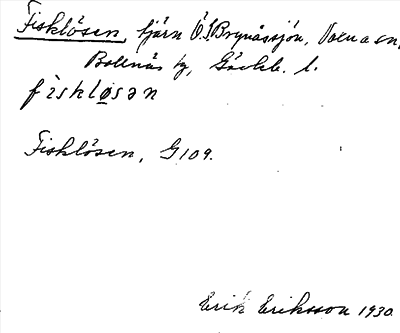 Fisklösen, tjärn Ö. Brynåssjön,
Bollnäs kg, Gävleb. l.
fiskløsən
Fisklösen, G109.
Erik Eriksson 1930.